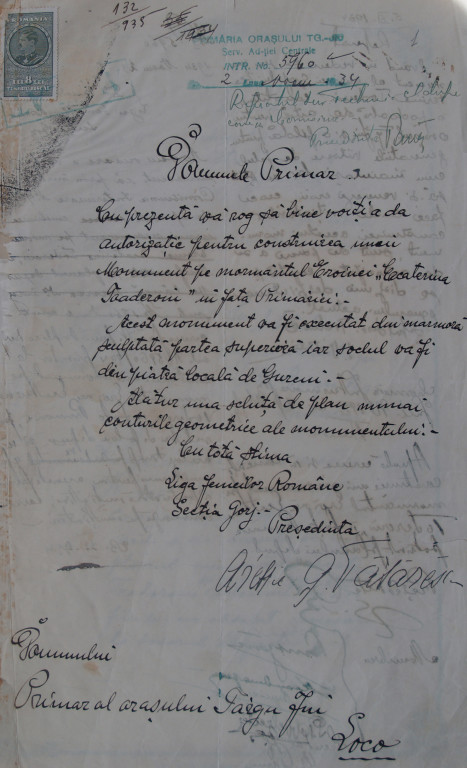 132
935
ROMÂNIA
PRIMĂRIA ORAȘULUI TG.-JIU
Serv. Ad-ției Centrale
INTR. No. 5960
2
1
Domnule Primar
Cu prezenta vă rog să bine voiți a da
autorizație pentru construirea unui
Monument pe mormântul Eroinei „Ecaterina
Teodoroiu" în fața Primăriei:-
Acest monument va fi executat din marmoră
sculptată partea superioră iar soclul va fi
din piatră locală de Gureni.-
Alătur una schiță de plan numai
conturile geometrice ale monumentului:-
Cu totă stima
Liga femeilor Române
Secția Gorj.-
Președinta
Arethie G. Tătărescu
Domnului
Primar al orașului Târgu Jiu
Loco